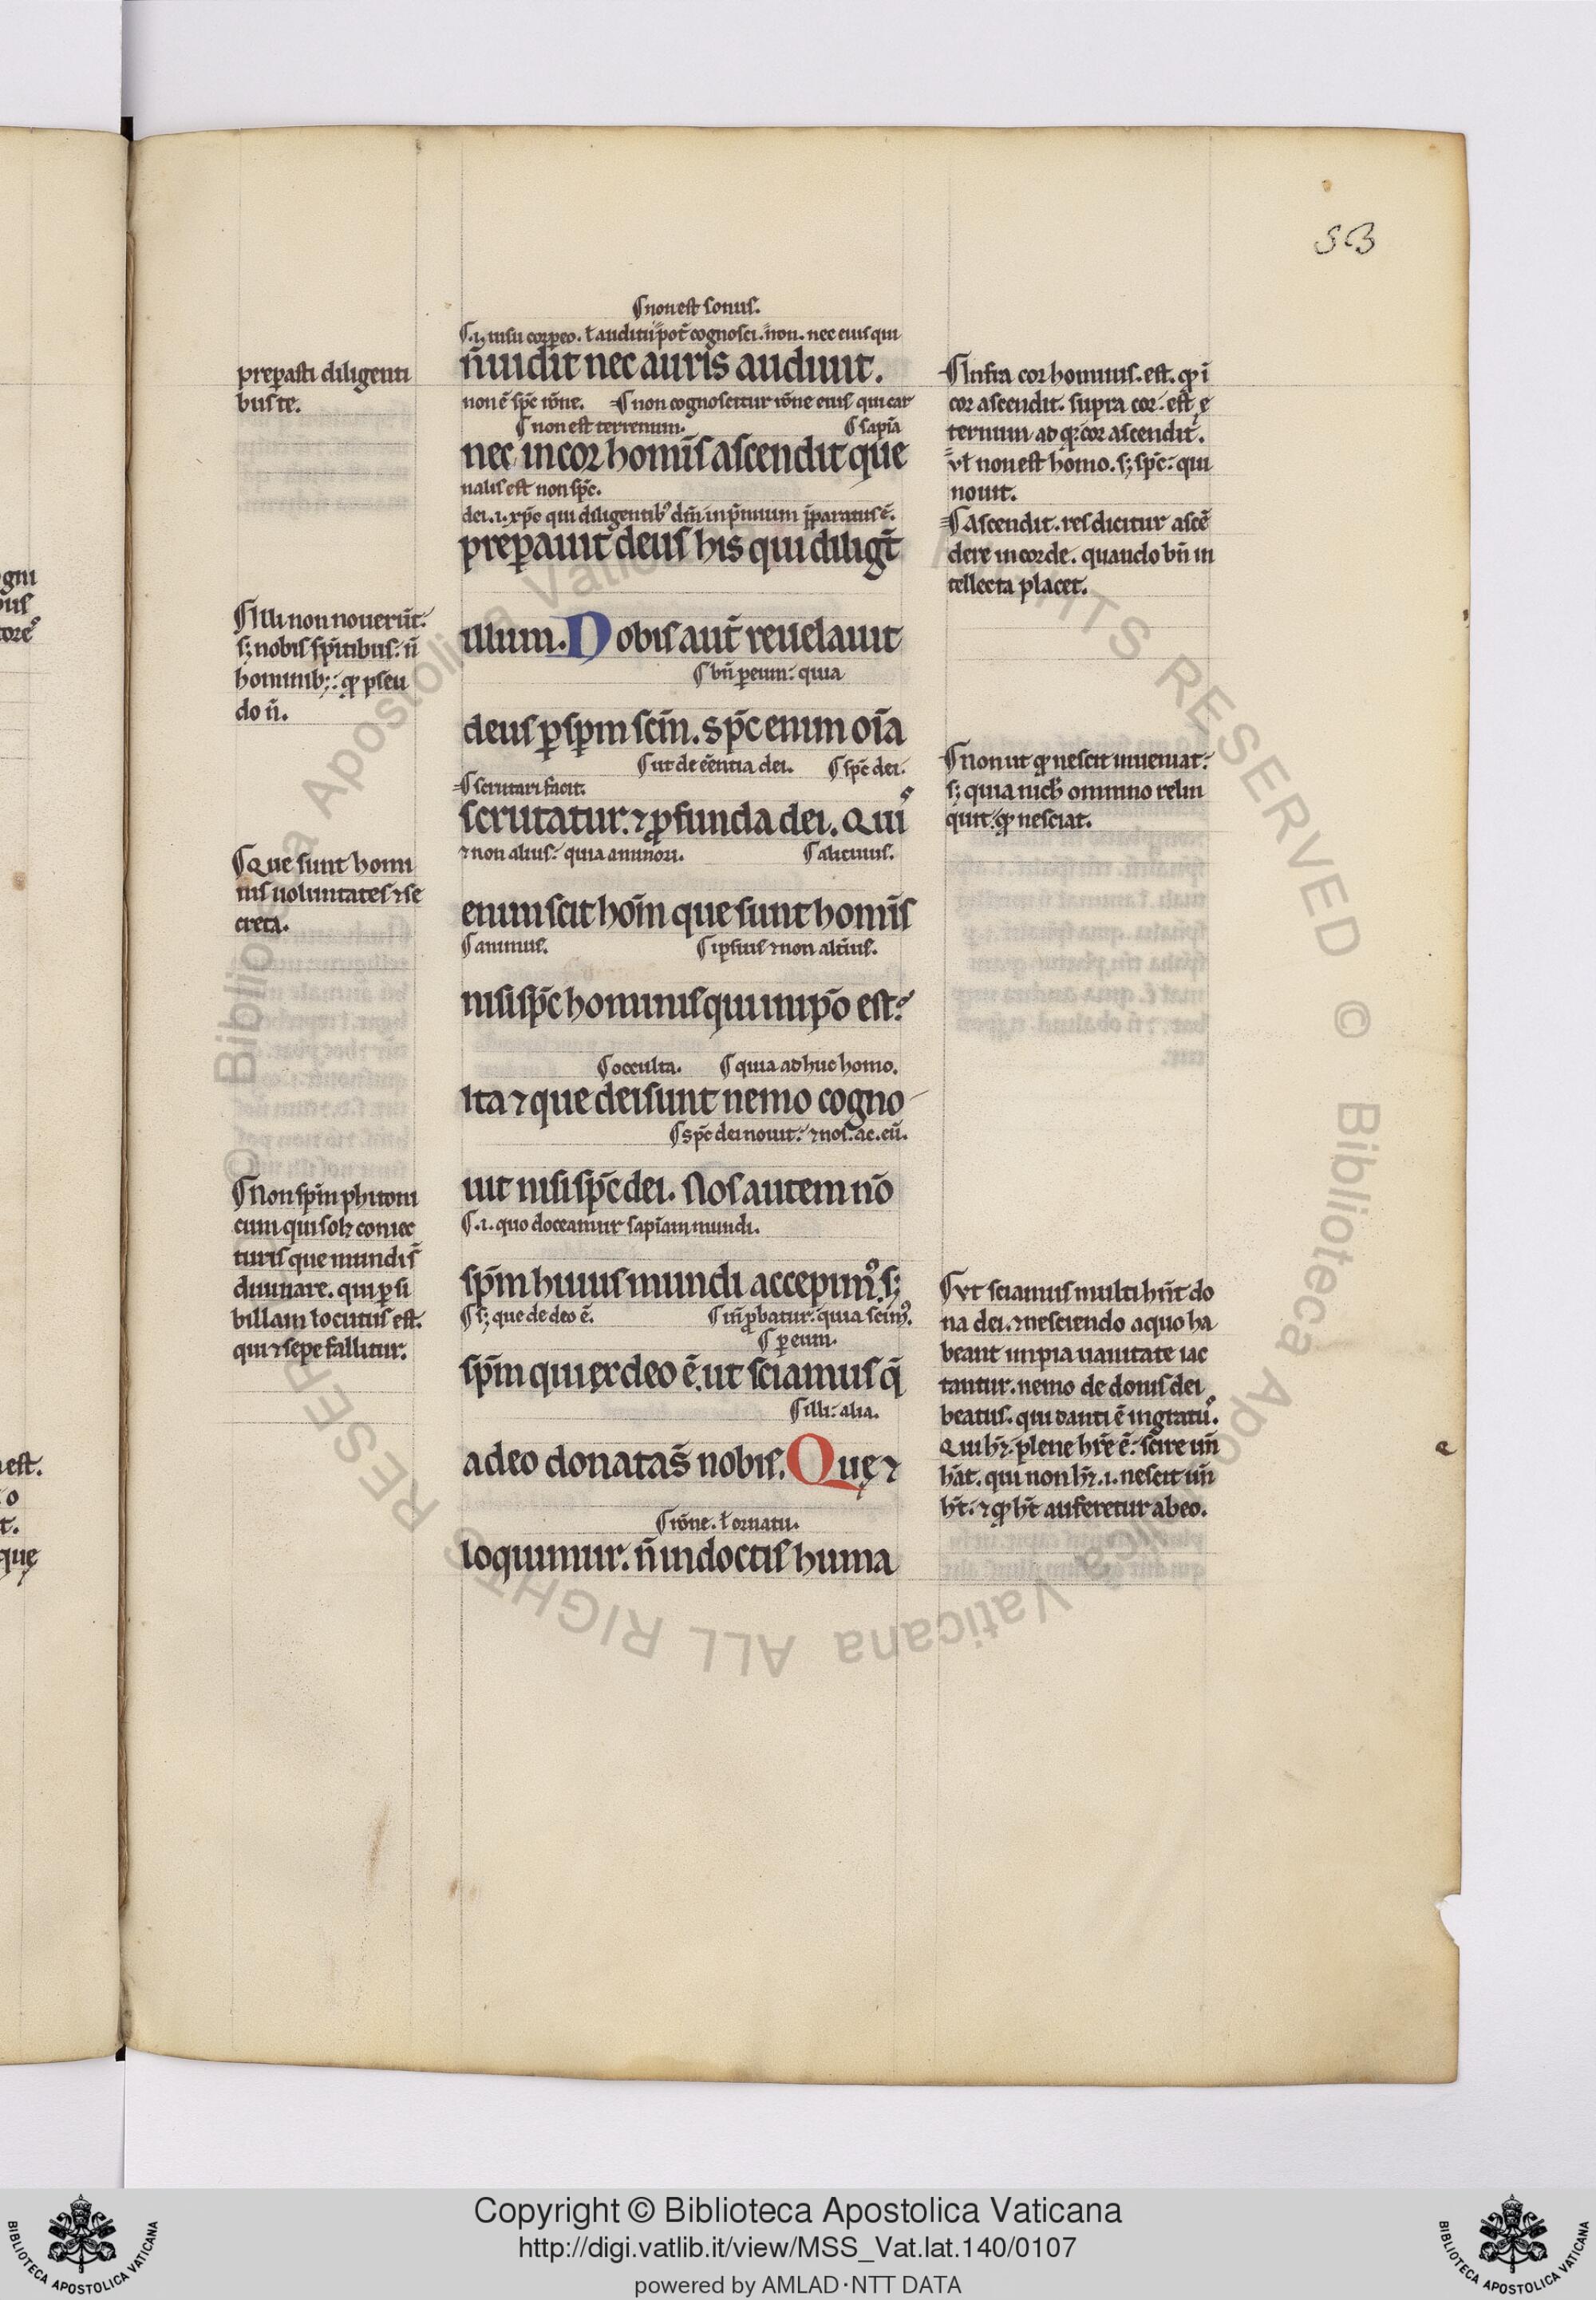 53
prepasti diligenti
bus te.
¶ Illi non nouerūt.
s; nobis sp̄itibus: n̄
hominib;: q̄ pseu
do n̄.
¶ Que sunt homi
nis uoluntates ⁊ se
creta.
¶ Non sp̄m phitoni
cum qui solꝫ coniec
turis que mundi s̄
diuinare. qui ꝑ si
billam locutus est.
qui ⁊ sepe fallitur.
¶ non est sonus.
n̄ uidit nec auris audiuit.
non ē sp̄c rōne. ¶ non cognoscitur rōne eius qui car
¶ non est terrenum. ¶ sapīa
nec in cor homīs ascendit que
nalis est non sp̄c.
dei .i. xp̄c qui diligentibꝰ dm̄ in p̄mium p̄paratus ē.
preꝑauit deus his qui diligt̄
illum. Nobis aut̄ reuelauit
¶ bn̄ ꝑ eum: quia
deus ꝑ sp̄m scm̄. Sp̄c enim oīa
¶ ut de eēntia dei. ¶ sp̄c dei.
¶ scrutari facit.
scrutatur. ⁊ ꝓfunda dei. Quiˢ
⁊ non alius: quia a minori. ¶ alicuius.
enim scit hoīm que sunt homīs
¶ animus. ¶ ipsius ⁊ non alt̄ius.
nisi sp̄c hominis qui in ip̄o est:
¶ occulta. ¶ quia adhuc homo.
Ita ⁊ que dei sunt nemo cogno
¶ sp̄c dei nouit: ⁊ nos. ac. eū.
uit nisi sp̄c dei. Nos autem nō
¶ .i. quo doceamur sapīam mundi.
sp̄m huius mundi accepimꝰ. s;
¶ s; que de deo ē. ¶ Un̄ ꝓbatur: quia scimꝰ.
¶ ꝑ eum.
sp̄m qui ex deo ē. ut sciamus q̄
¶ illi: alia.
a deo donata s̄ nobis. Quę ⁊
¶ rōne. ł ornatu.
loquimur. n̄ in doctis huma
¶ Infra cor hominis. est. q̄ ī
cor ascendit. supra cor: est ę
ternum ad q̄ cor ascendit.
Vł non est homo. s; sp̄c: qui
nouit.
¶ Ascendit. res dicitur ascē
dere in corde. quando bn̄ in
tellecta placet.
¶ Non ut q̄ nescit inueniat:
s; quia nich̄ omnino relin
quit: q̄ nesciat.
¶ Vt sciamus multi hn̄t do
na dei. ⁊ nesciendo a quo ha
beant impia uanitate iac
tantur. nemo de donis dei
beatus. qui danti ē ingratꝰ.
Qui hꝫ. plene hr̄e ē: scire un̄
hāt. qui non hꝫ .i. nescit un̄
h̄t: ⁊ q̄ h̄t auferetur ab eo.
Copyright © Biblioteca Apostolica Vaticana
http://digi.vatlib.it/view/MSS_Vat.lat.140/0107
powered by AMLAD·NTT DATA
BIBLIOTECA APOSTOLICA VATICANA
BIBLIOTECA APOSTOLICA VATICANA
© Biblioteca Apostolica Vaticana ALL RIGHTS RESERVED
© Biblioteca Apostolica Vaticana ALL RIGHTS RESERVED